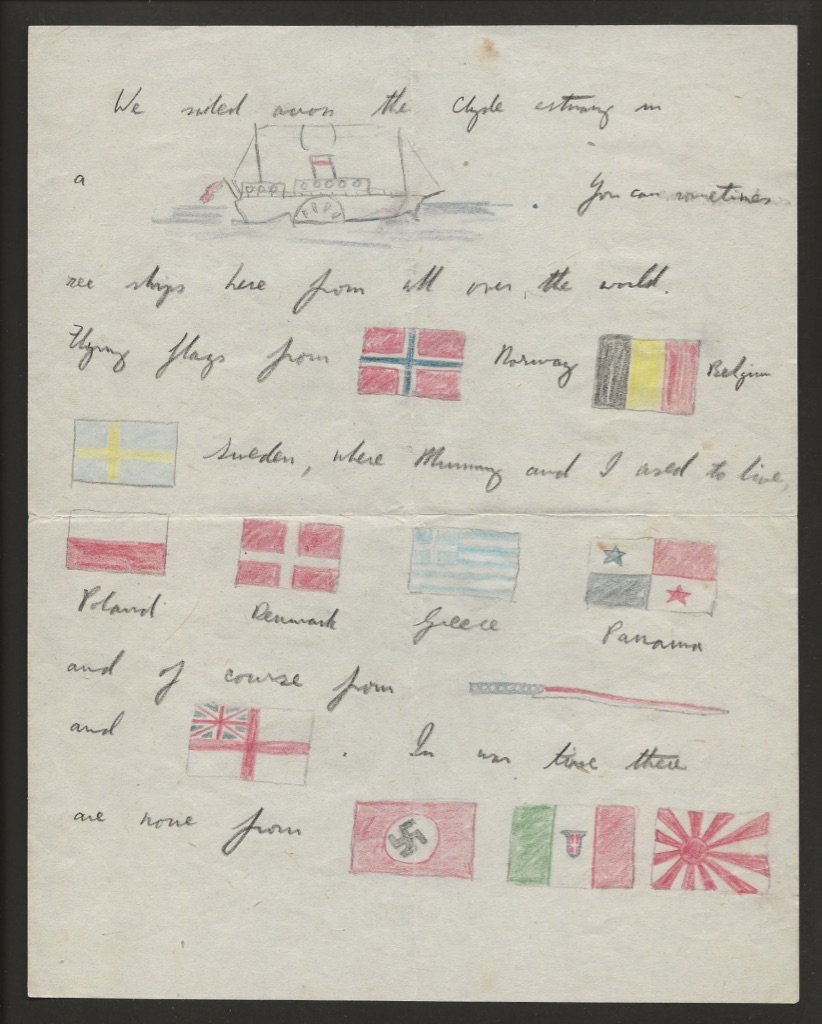 We sailed across the Clyde estuary in
a . You can sometimes
see ships here from all over, the world.
Flying flags from Norway Belgium
Sweden, where Mummy and I used to live,
Poland Denmark Greece Panama
and of course from
and . In war time there
are none from